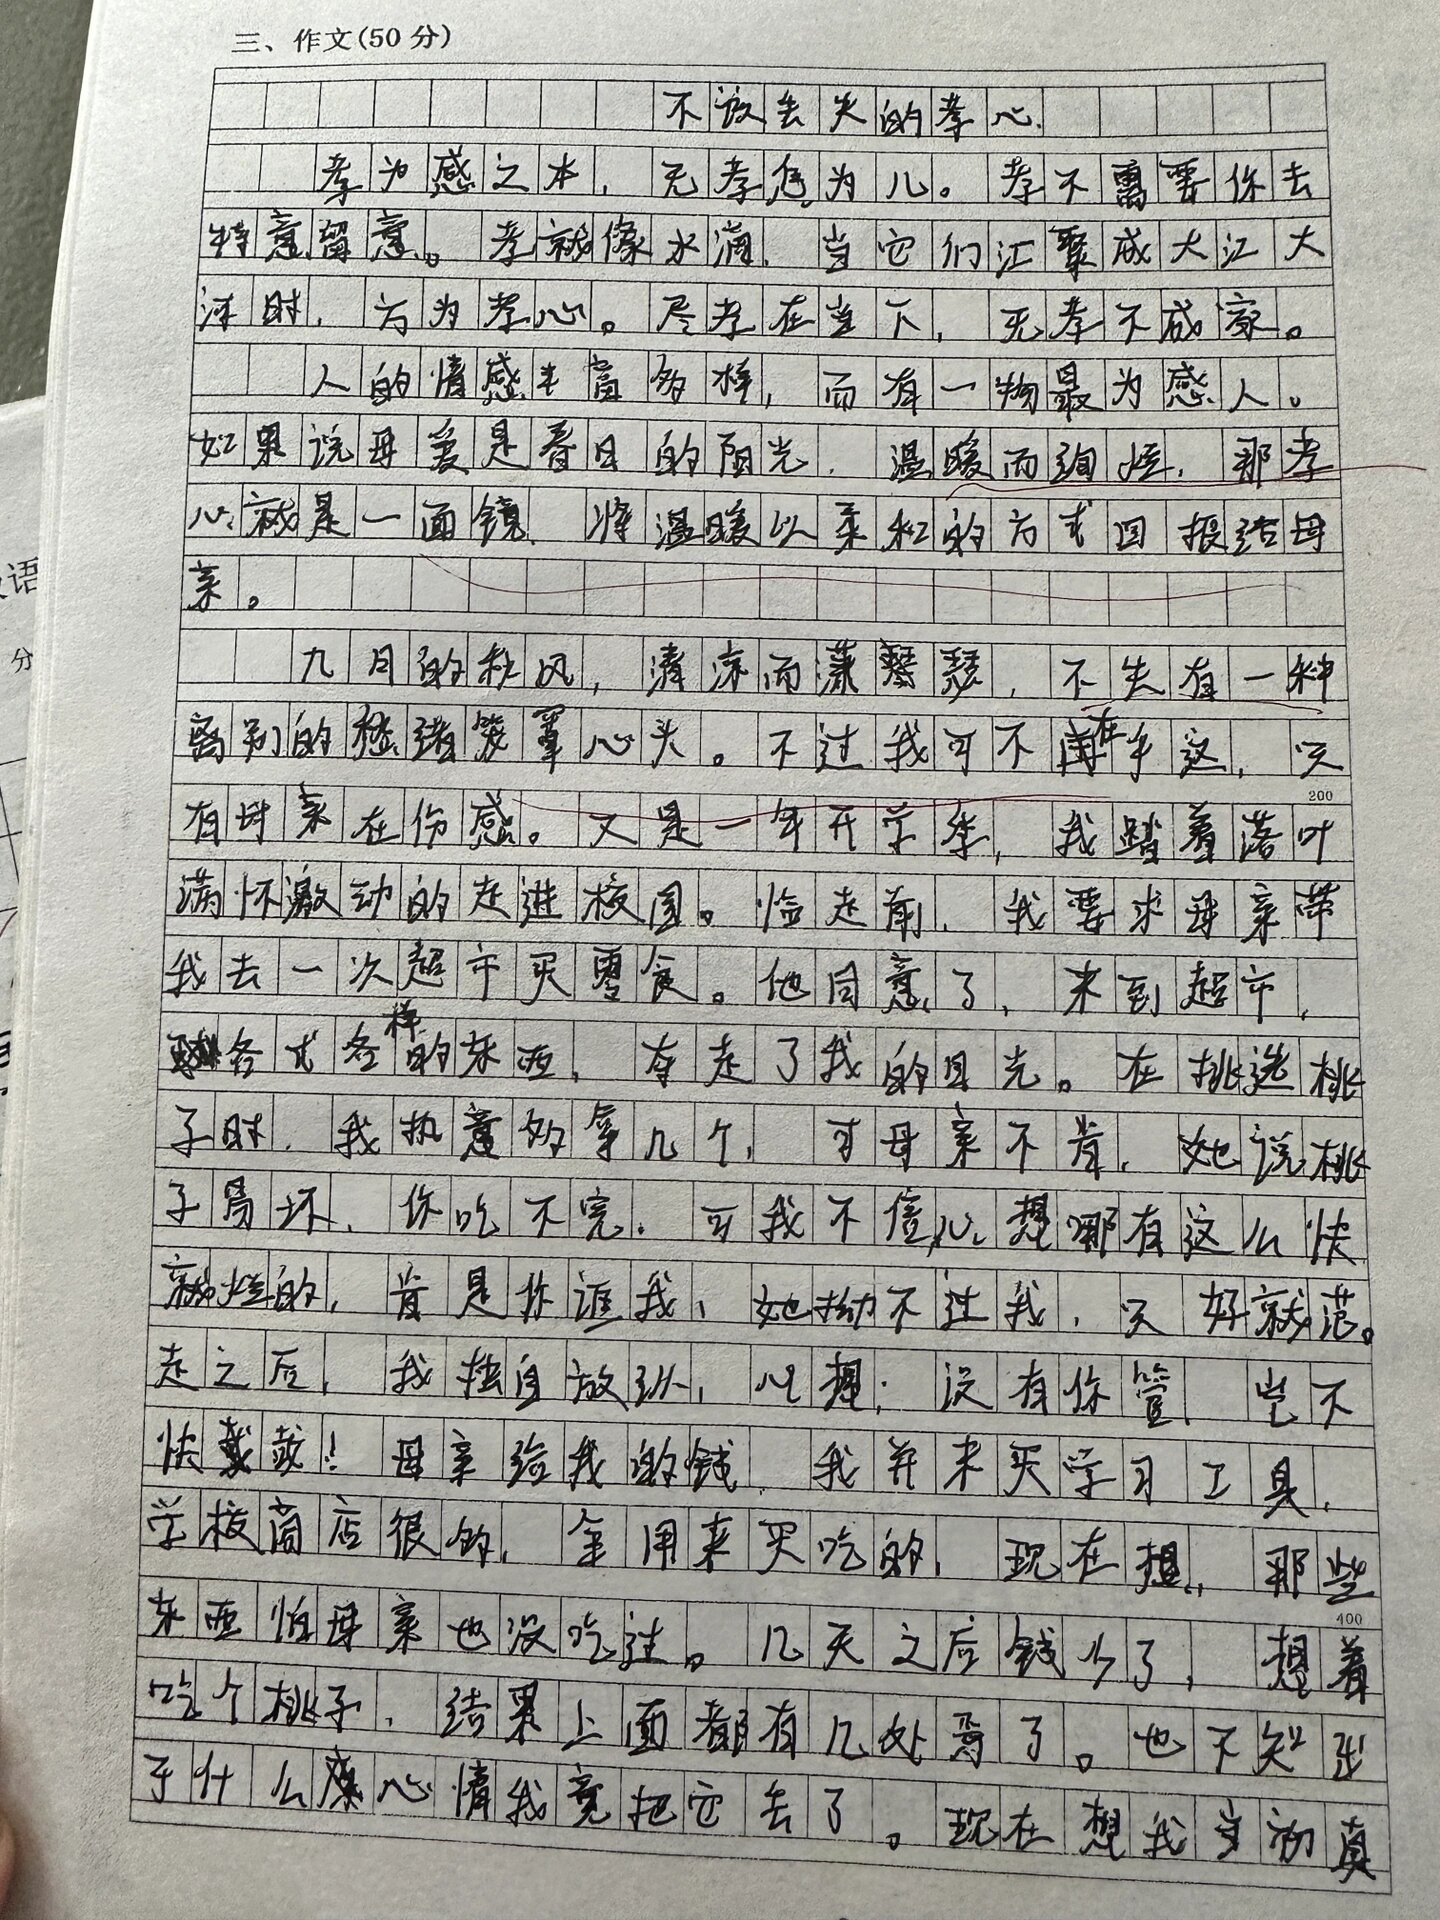 三、作文(50分)
不该丢失的孝心
孝为感之本，无孝怎为儿。孝不需要你去
特意留意。孝就像水滴，当它们汇聚成大江大
河时，方为孝心。尽孝在当下，无孝不成家。
人的情感丰富多样，而有一物最为感人。
如果说母爱是春日的阳光，温暖而绚烂，那孝
心就是一面镜，将温暖以柔和的方式回报给母
亲。
九月的秋风，清凉而潇瑟，不失有一种
离别的愁绪笼罩心头。不过我可不在乎这，只
200
有母亲在伤感。又是一年开学季，我踏着落叶
满怀激动的走进校园。临走前，我要求母亲带
我去一次超市买零食。他同意了，来到超市，
各式各样的东西，夺走了我的目光。在挑选桃
子时，我执意多拿几个，可母亲不肯，她说桃
子易坏，你吃不完，可我不信，心想哪有这么快
就烂的，肯是你诓我，她拗不过我，只好就范。
走之后，我独自放纵，心想：没有你管，岂不
快哉！母亲给我的钱，我并未买学习工具，
学校商店很多，全用来买吃的，现在想，那些
400
东西怕母亲也没吃过。几天之后钱少了，想着
吃个桃子，结果上面都有几处霉了。也不知出
于什么心情我竟把它去了。现在想我当初真